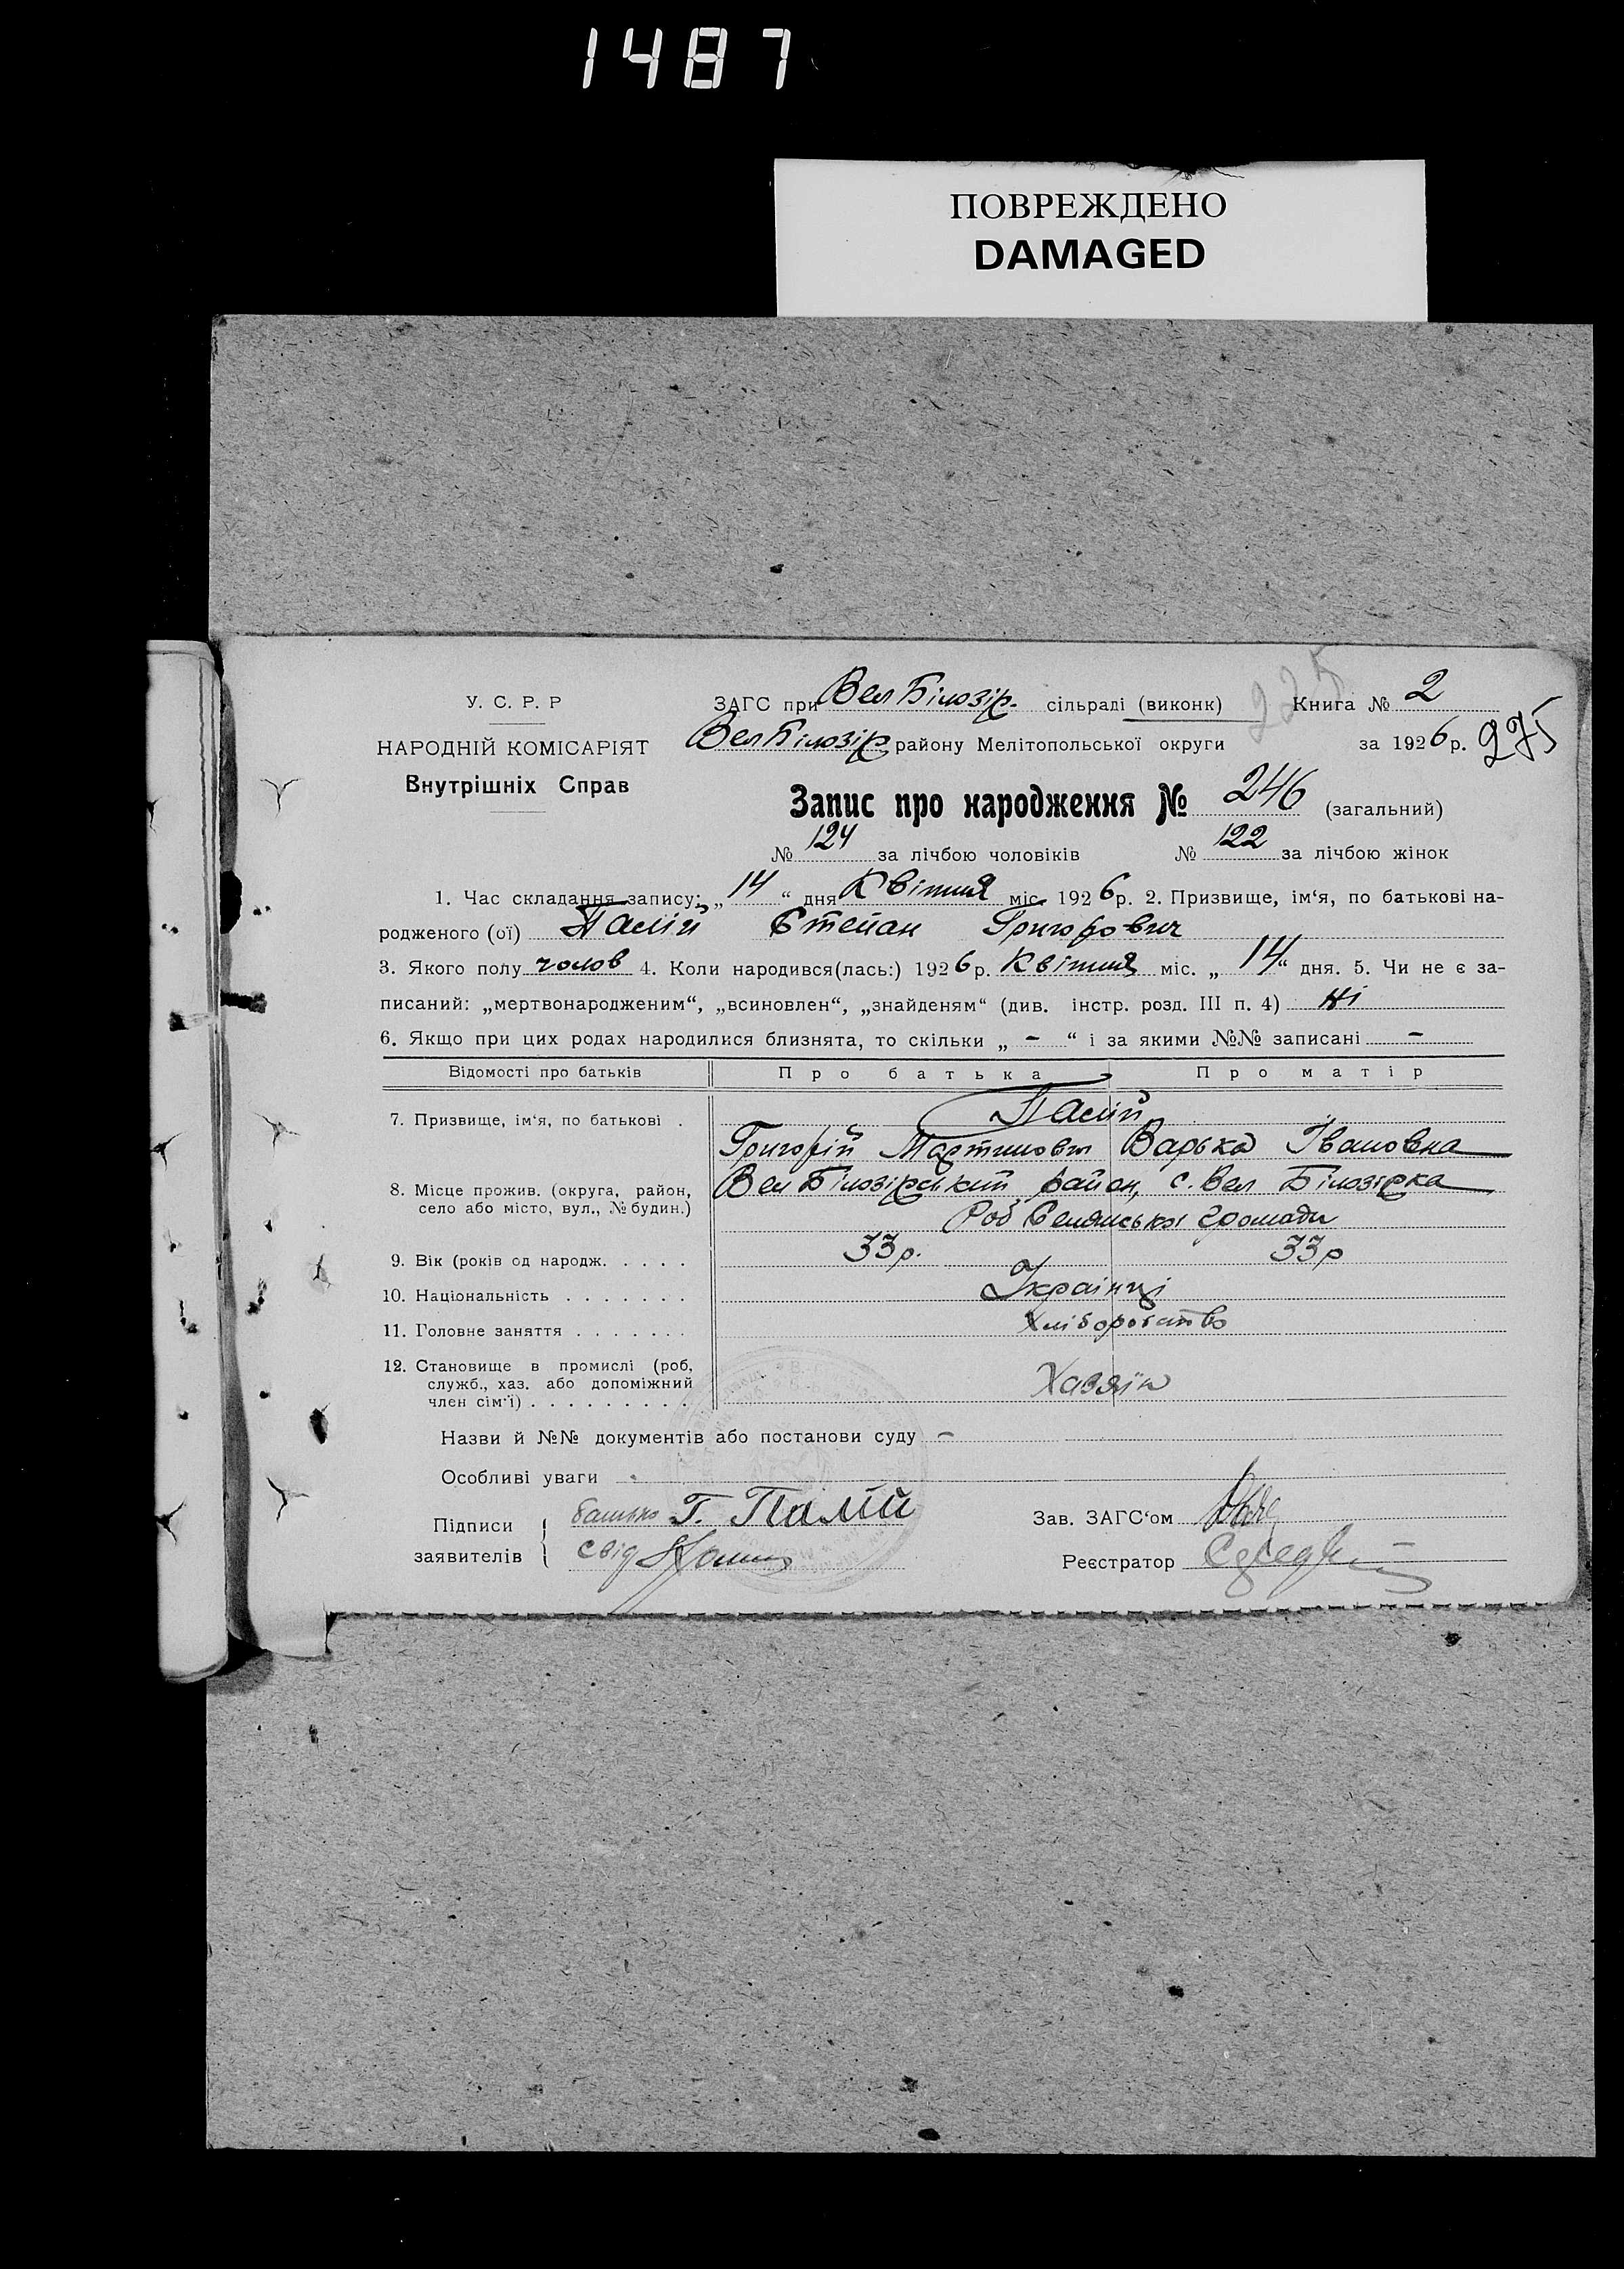 1487
ПОВРЕЖДЕНО
DAMAGED
У. С. Р. Р
НАРОДНІЙ КОМІСАРІЯТ
Внутрішніх Справ
ЗАГС при Вел Білозір. сільраді (виконк)
225
Книга № 2
Вел Білозір району Мелітопольської округи
за 1926 р. 275
Запис про народження № 246 (загальний)
№ 124 за лічбою чоловіків № 122 за лічбою жінок
1. Час складання запису: „14“ дня Квітня міс. 1926 р. 2. Призвище, ім‘я, по батькові на-
родженого (ої) Палій Степан Григорович
3. Якого полу чолов 4. Коли народився(лась:) 1926 р. Квітня міс. „14“ дня. 5. Чи не є за-
писаний: „мертвонародженим“, „всиновлен“, „знайденям“ (див. інстр. розд. III п. 4) Ні
6. Якщо при цих родах народилися близнята, то скільки „ - “ і за якими №№ записані -
Відомості про батьків Про батька Про матір
7. Призвище, ім‘я, по батькові . Палій
Григорій Мартинович Варька Івановна
8. Місце прожив. (округа, район,
село або місто, вул., № будин.)
Вел Білозірський район, с. Вел Білозірка
Роб Селянської громади
9. Вік (років од народж. . . . . 33 р. 33 р
10. Національність . . . . . . . Українці
11. Головне заняття . . . . . . . Хліборобство
12. Становище в промислі (роб,
служб., хаз. або допоміжний
член сім‘ї) . . . . . . . . .
Хазяїн
Назви й №№ документів або постанови суду -
Особливі уваги
Підписи
заявителів
батько Г. Палій
свід
Зав. ЗАГС‘ом
Реєстратор